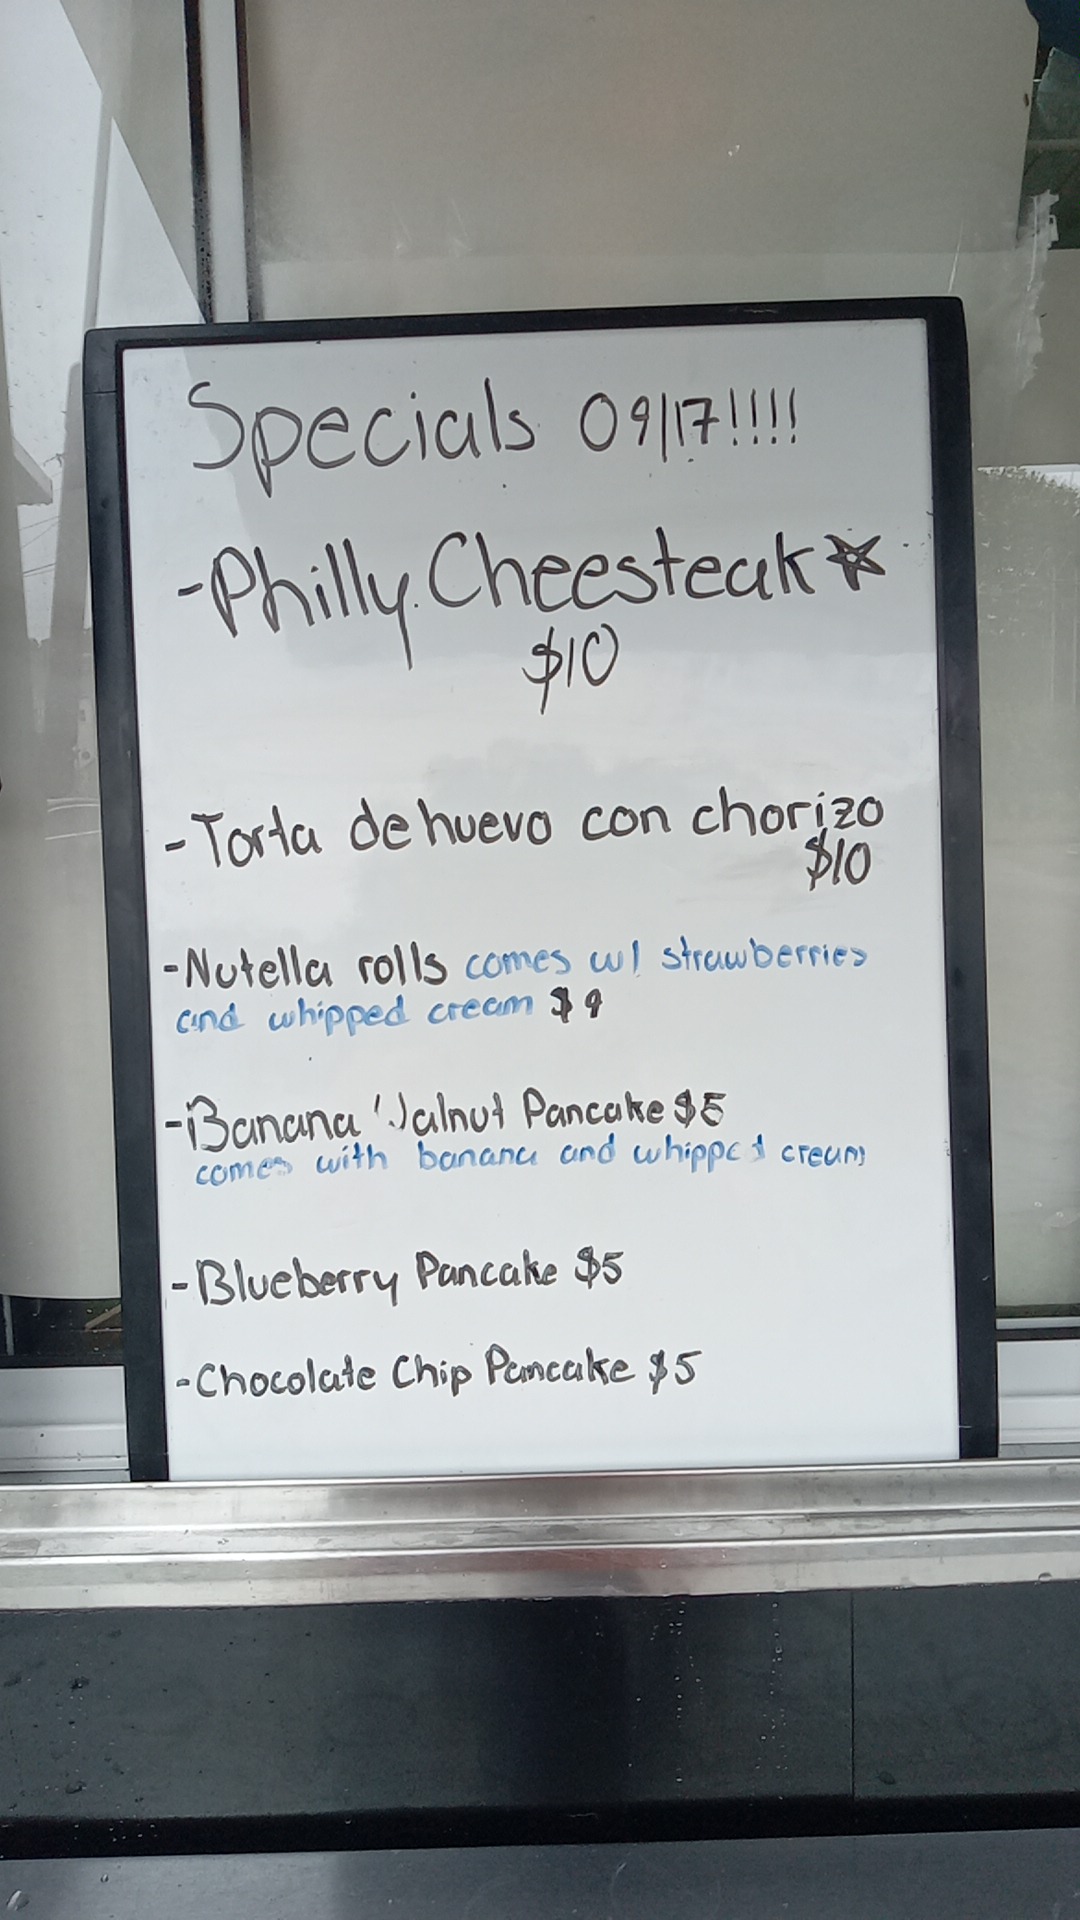 Specials 09/17!!!!
-Philly Cheesteak☆
$10
-Torta de huevo con chorizo
$10
-Nutella rolls comes w/ strawberries
and whipped cream $9
-Banana Walnut Pancake $5
comes with banana and whipped cream
-Blueberry Pancake $5
-Chocolate Chip Pancake $5